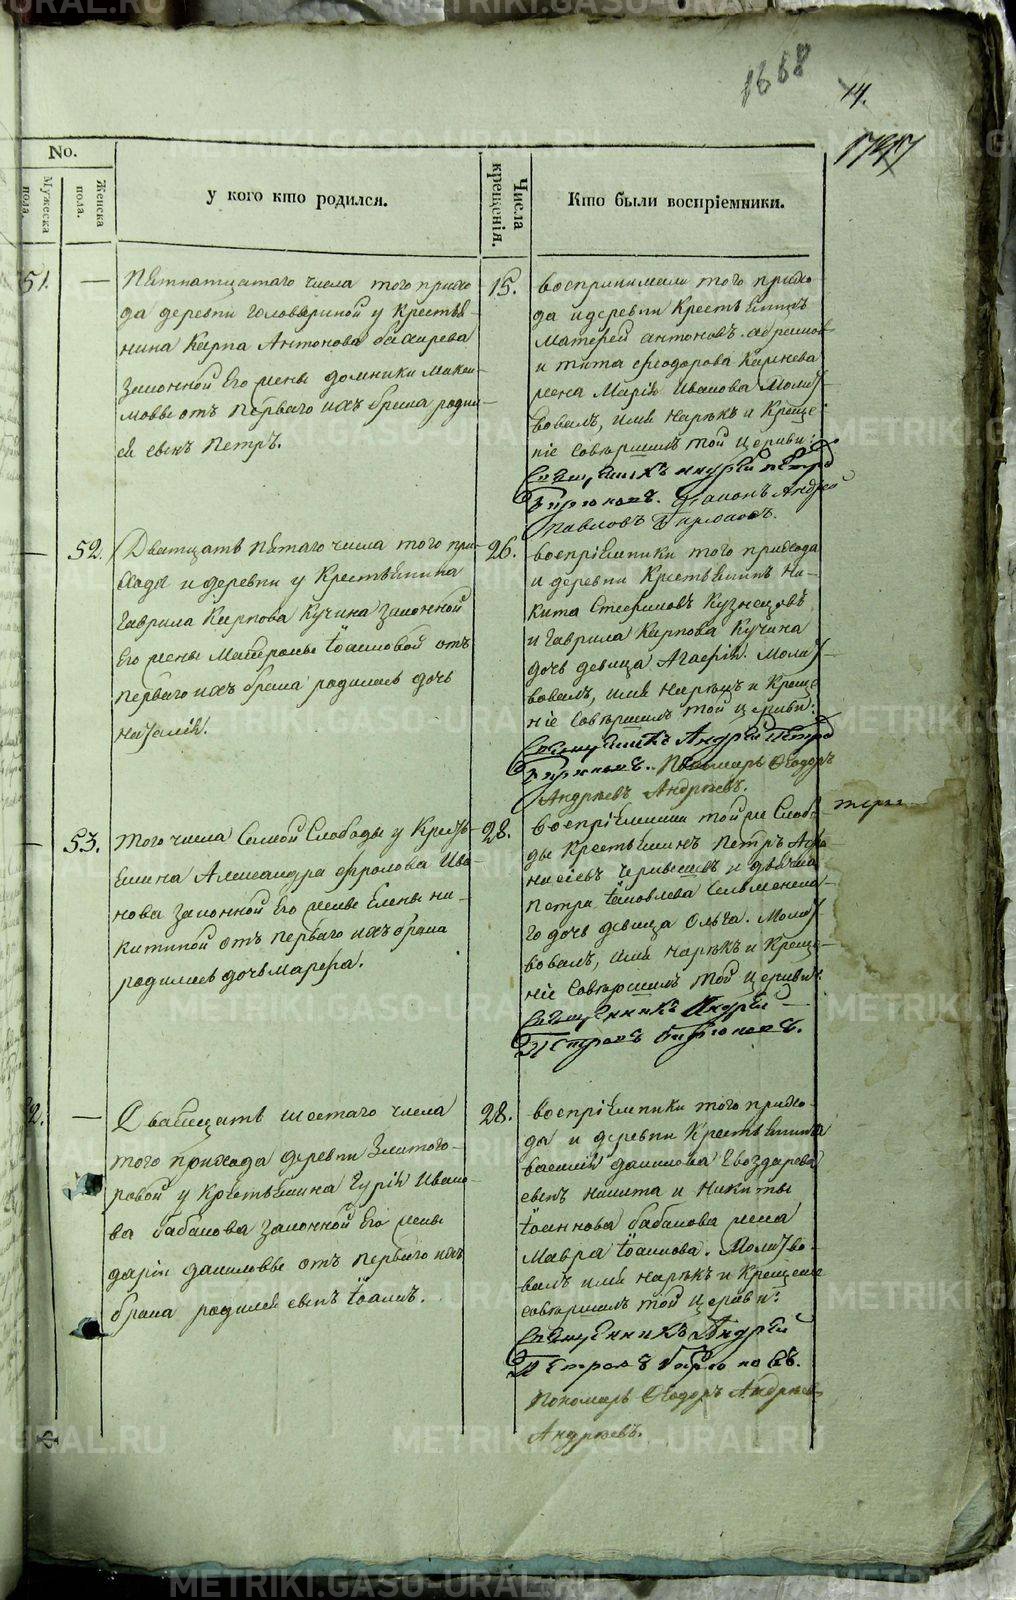 1668
14.
1797
No.
Мужеска пола.
Женска пола.
у кого кто родился.
Числа крещенія.
Кто были воспріемники.
51.
—
Пятнатцатаго числа того прихо
да деревни Головыриной у Крестья-
нина Карпа Антонова
законной Его жены домники Макси
мовы отъ перваго ихъ брака родил
ся сынъ Петръ.
15.
воспринимали того прихо
да и деревни Крестьянинъ
Матфей антоновъ
и тита феодорова
жена Марія Иванова Молит
вовалъ, имя нарѣкъ и Креще
ніе совѣршилъ той цѣркви:
Священникъ андрей петро
Бирюковъ. діаконъ Андрей
Павловъ Бирюковъ.
—
52.
Дватцать пятаго числа того при
хода и деревни у Крестьянина
Гаврила Карпова Кучина законной
Его жены Матроны Іоанновой отъ
перваго ихъ брака родилась дочь
наталія.
26.
воспріемники того прихода
и деревни Крестьянинъ Ни-
кита Стефановъ Кузнецовъ
и Гаврила Карпова Кучина
дочь девица Агафія. Молит
вовалъ, имя нарѣкъ и Креще
ніе совѣршилъ той цѣркви:
Священникъ Андрей Петро
Бирюковъ. Пономарь Ѳеодоръ
Андрѣевъ Андрѣевъ.
—
53.
того числа Самой Слободы у Кресть
янина Александра фролова Ива
нова законной Его жены Елены ни-
китиной отъ перваго ихъ брака
родилась дочь марфа.
28.
воспріемники той же Слобо
ды Крестьянинъ Петръ Афа
насіевъ и дьячка
Петра Іаковлева
го дочь девица Ольга. Молит
вовалъ, имя нарѣкъ и Креще
ніе совѣршилъ той цѣркви:
Священникъ Андрей
Петровъ Бирюковъ.
52.
—
Двадцать шестаго числа
того прихода деревни Златого-
ровой у Крестьянина Гурія Ивано-
ва бабанова законной Его жены
даріи даниловы отъ перваго ихъ
брака родился сынъ Іоаннъ.
28.
воспріемники того прихо-
да и деревни Крестьянина
василія данилова Гвоздарева
сынъ никита и Никиты
Іоаннова бабанова жена
Мавра Іоаннова. Молитво-
валъ имя нарѣкъ и Крещеніе
совѣршилъ той цѣркви:
Священникъ Андрей
Петровъ Бирюковъ.
Пономарь Ѳеодоръ Андрѣевъ
Андрѣевъ.
METRIKI.GASO-URAL.RU